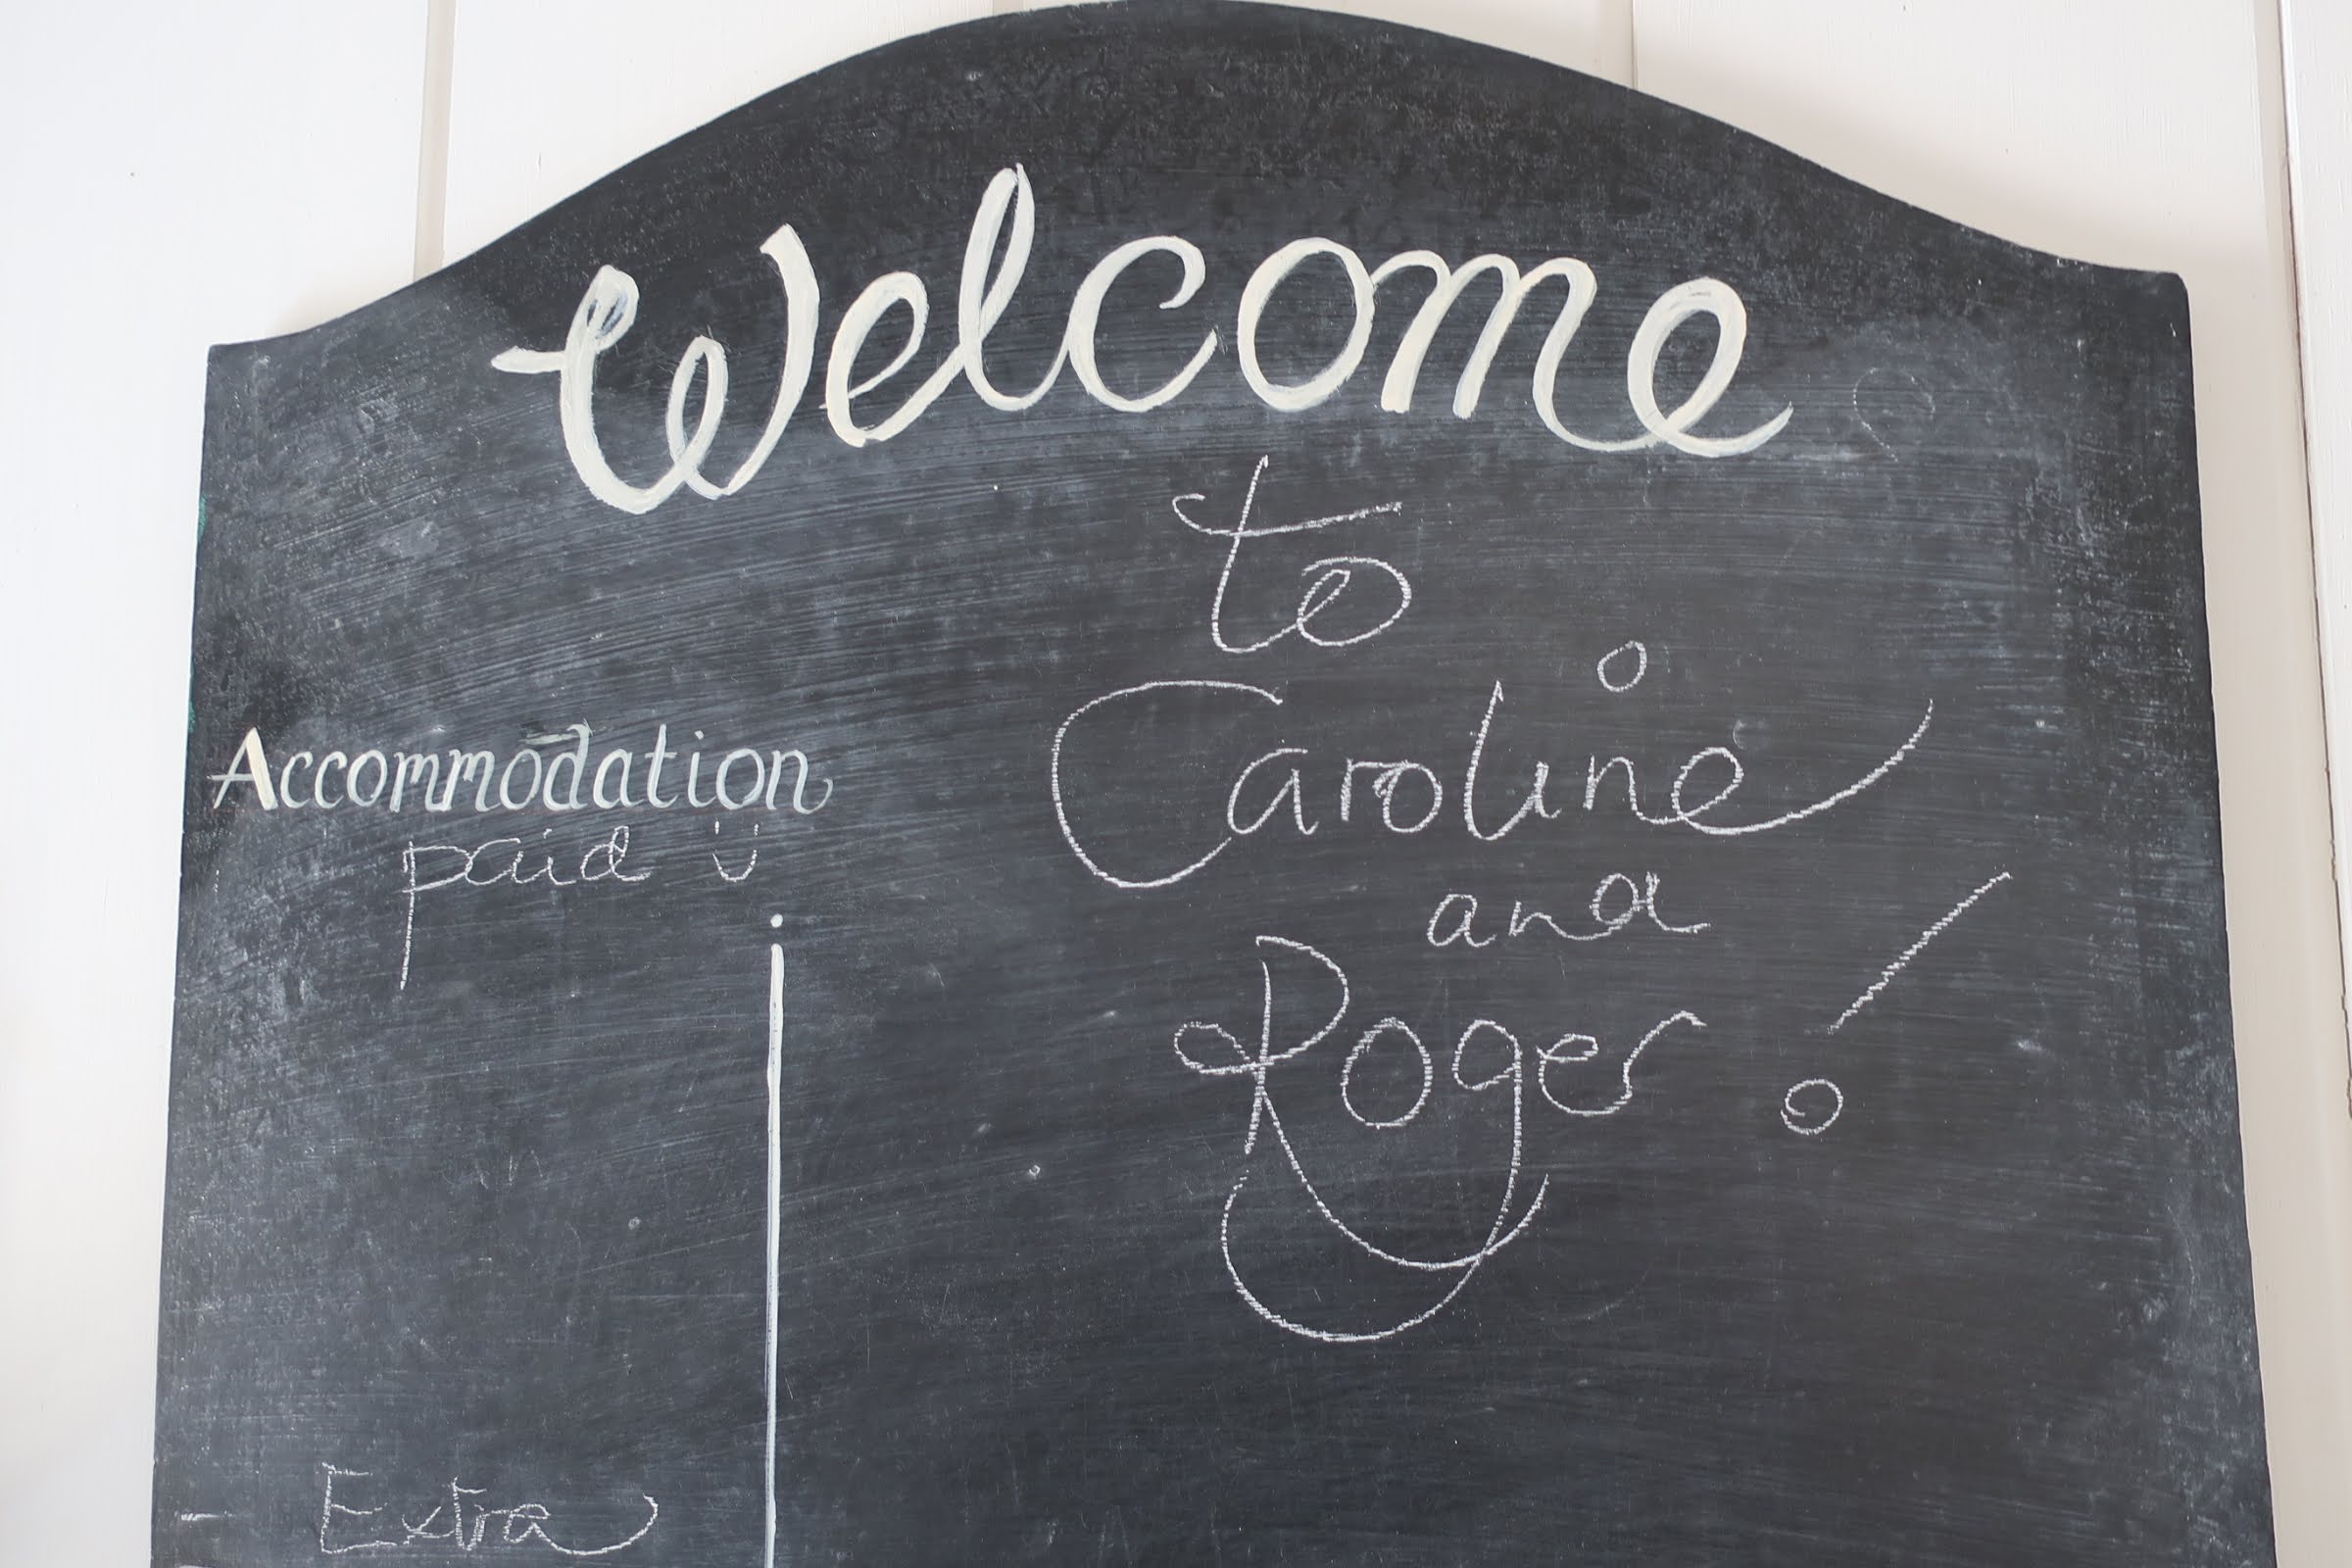 Welcome
to
Caroline
and
Roger!
Accommodation
paid
Extra